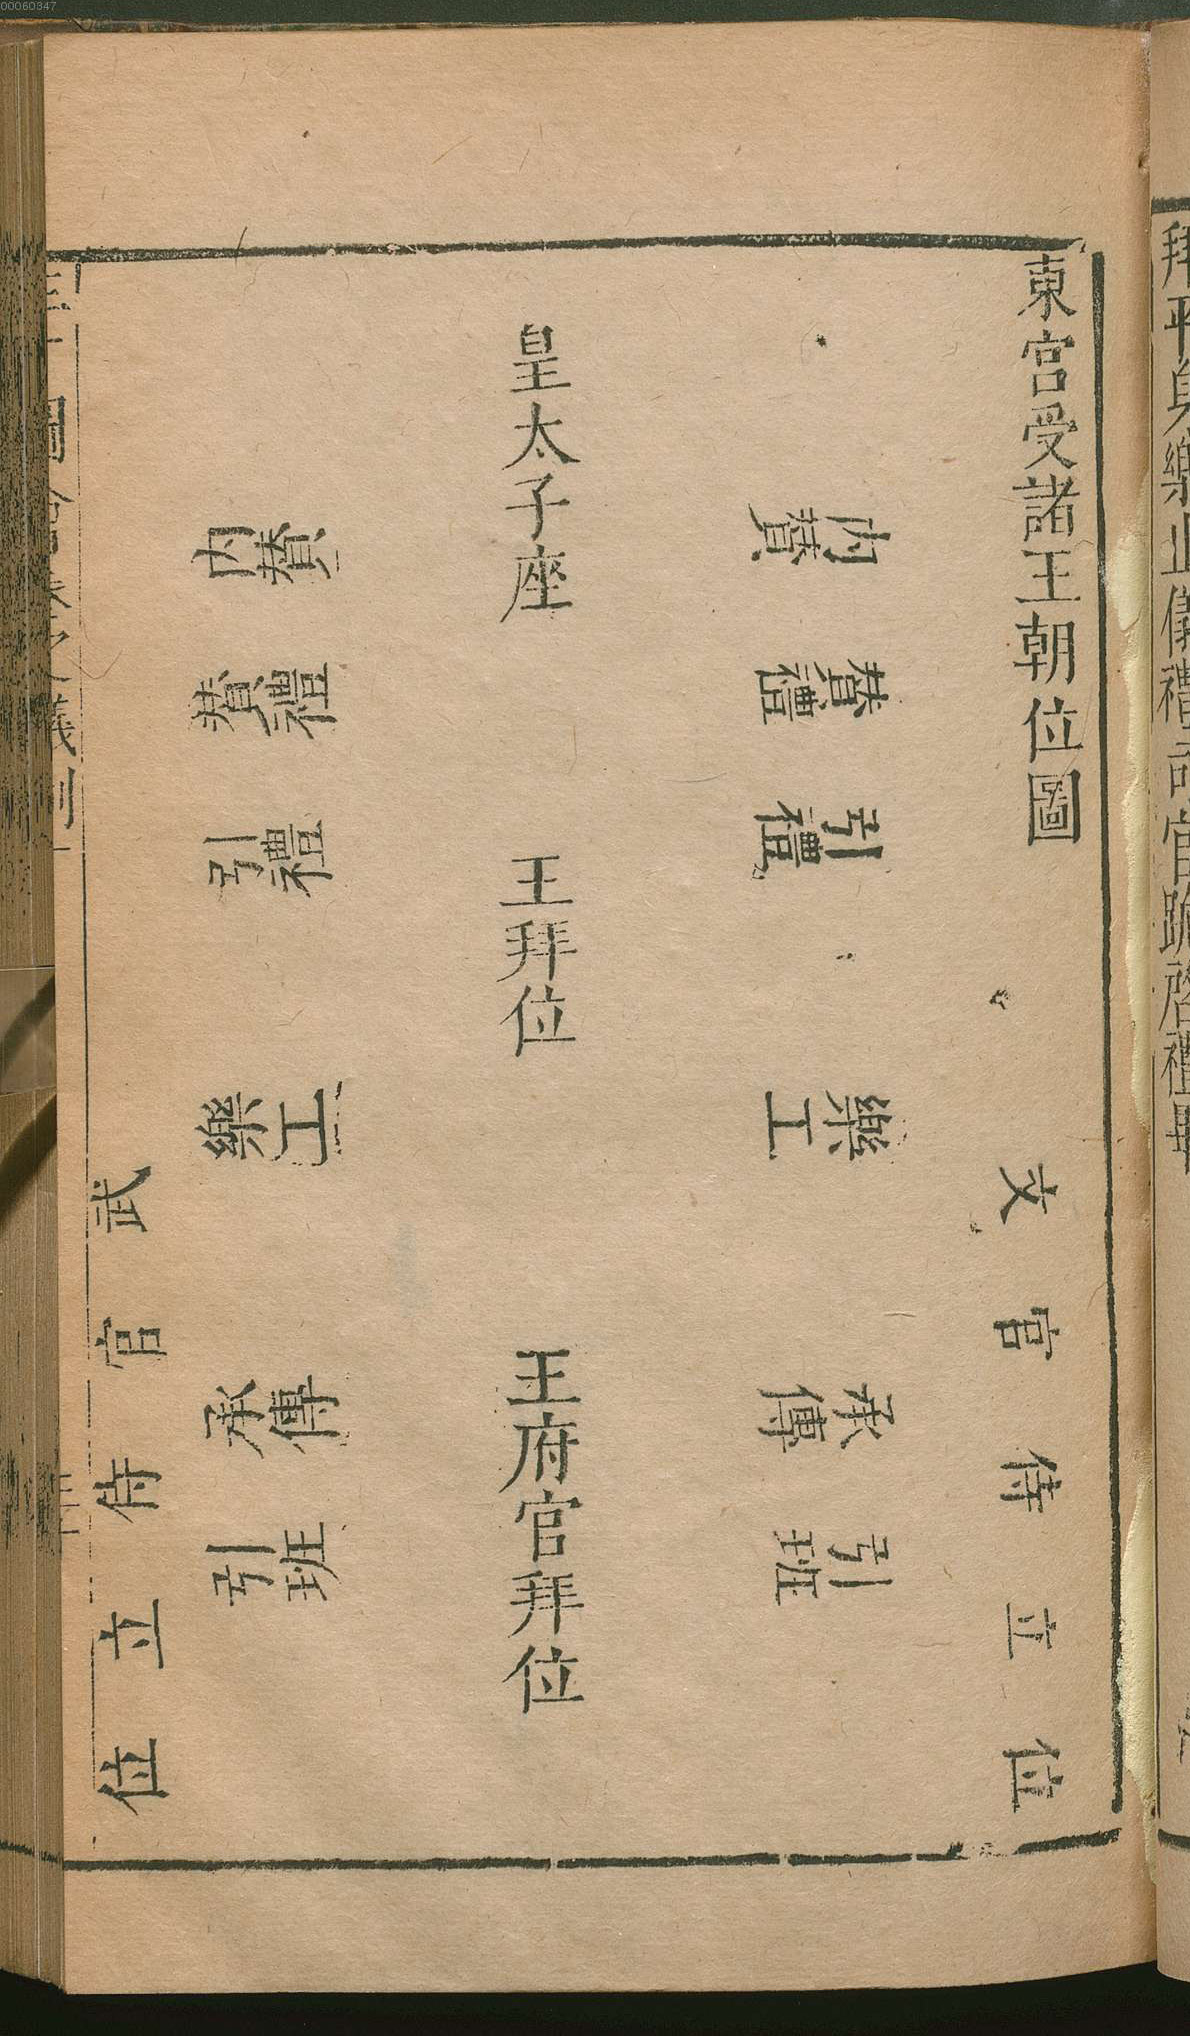 00060347
東宮受諸王朝位圖
文官侍立位
內贊
贊禮
引禮
樂工
承傳
引班
皇太子座
王拜位
王府官拜位
內贊
贊禮
引禮
樂工
承傳
引班
武官侍立位